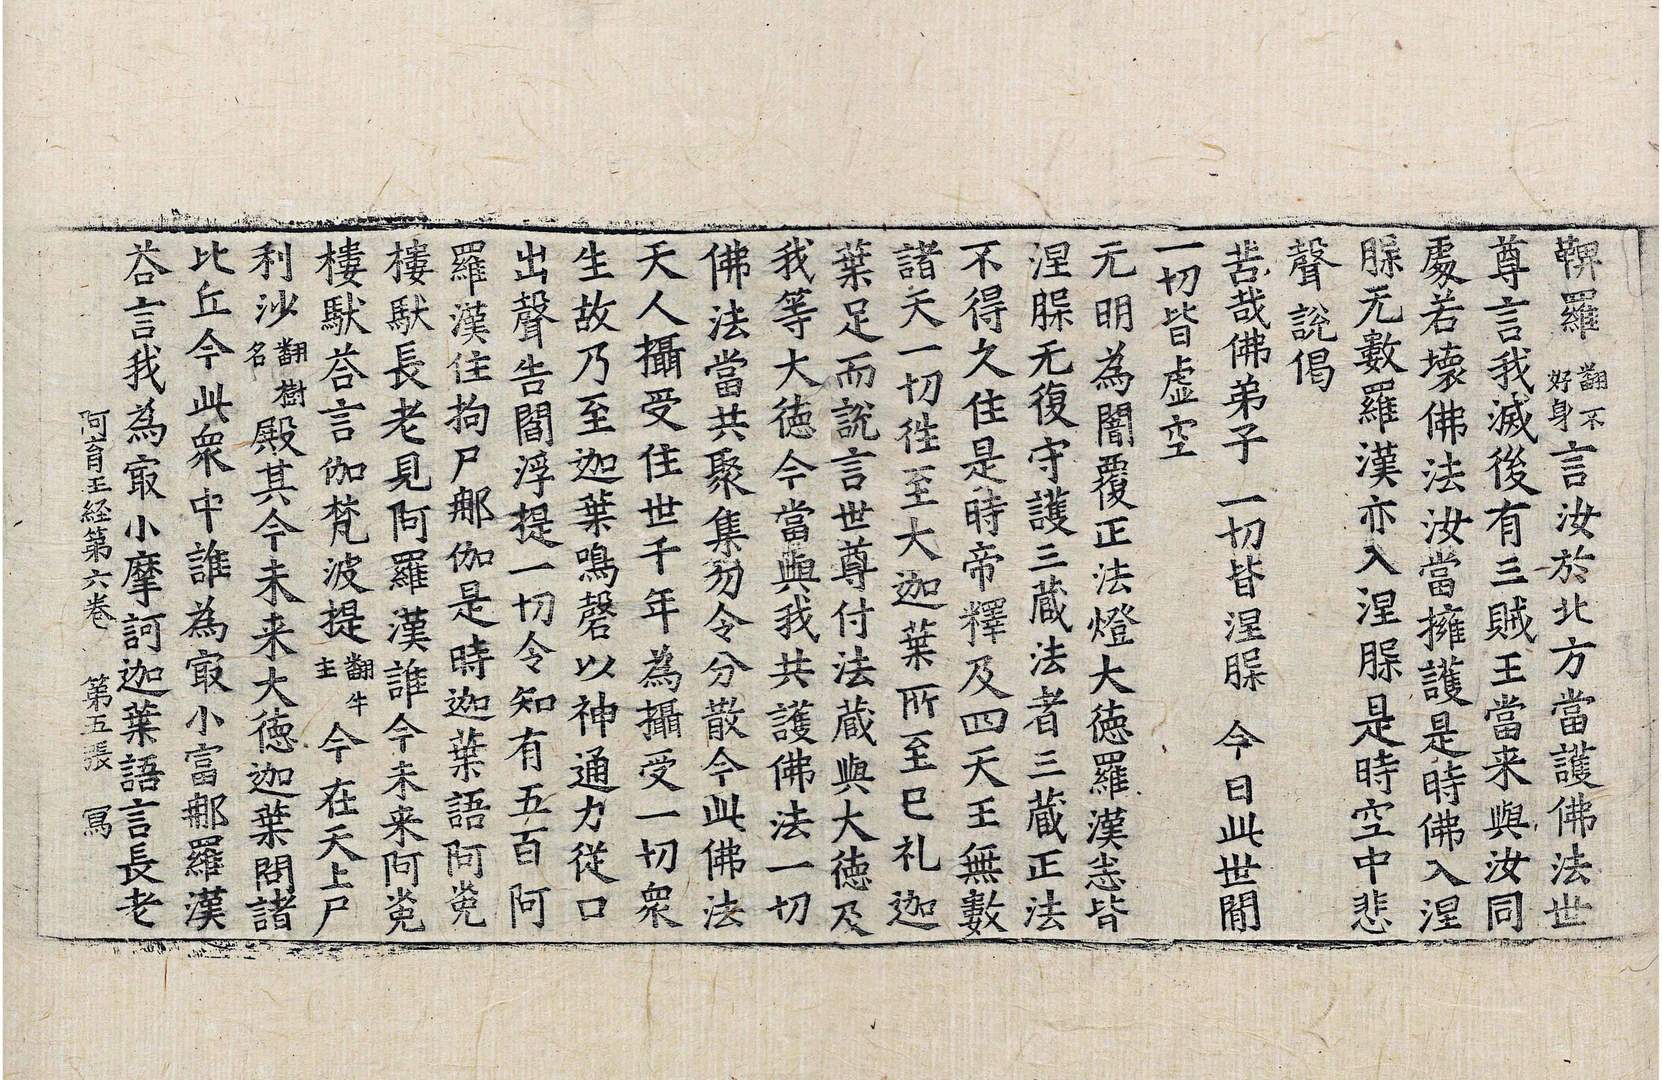 鞞羅翻不好身言汝於北方當護佛法世
尊言我滅後有三賊王當来與汝同
處若壞佛法汝當擁護是時佛入涅
䏶无數羅漢亦入涅䏶是時空中悲
聲說偈
苦哉佛弟子 一切皆涅䏶 今日此世閒
一切皆虛空
无明為闇覆正法燈大德羅漢悉皆
涅䏶无復守護三藏法者三藏正法
不得久住是時帝釋及四天王無數
諸天一切徃至大迦葉所至已礼迦
葉足而說言世尊付法藏與大德及
我等大德今當與我共護佛法一切
佛法當共聚集勿令分散今此佛法
天人攝受住世千年為攝受一切衆
生故乃至迦葉鳴磬以神通力從口
出聲告閻浮提一切令知有五百阿
羅漢住拘尸郍伽是時迦葉語阿㝹
樓馱長老見阿羅漢誰今未来阿㝹
樓馱荅言伽梵波提翻牛主今在天上尸
利沙翻樹名殿其今未来大德迦葉問諸
比丘今此衆中誰為冣小富郍羅漢
荅言我為冣小摩訶迦葉語言長老
阿育王経第六卷 第五張 寫